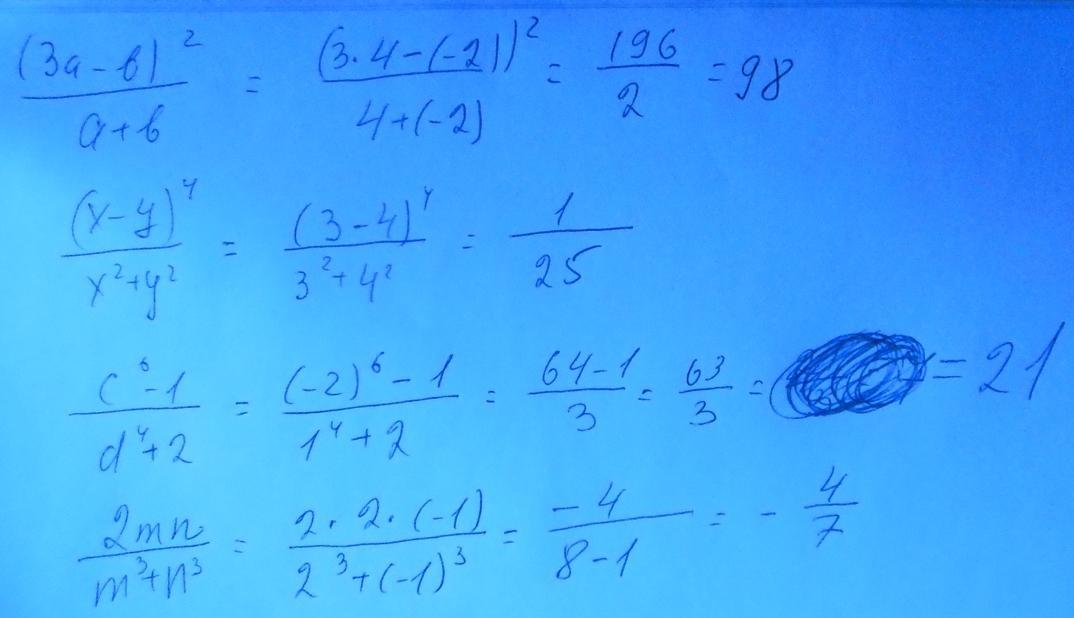 (3a-b)²/(a+b) = (3·4-(-2))²/(4+(-2)) = 196/2 = 98
(x-y)⁴/(x²+y²) = (3-4)⁴/(3²+4²) = 1/25
(c⁶-1)/(d⁴+2) = ((-2)⁶-1)/(1⁴+2) = (64-1)/3 = 63/3 = = 21
2mn/(m³+n³) = (2·2·(-1))/(2³+(-1)³) = -4/(8-1) = -4/7